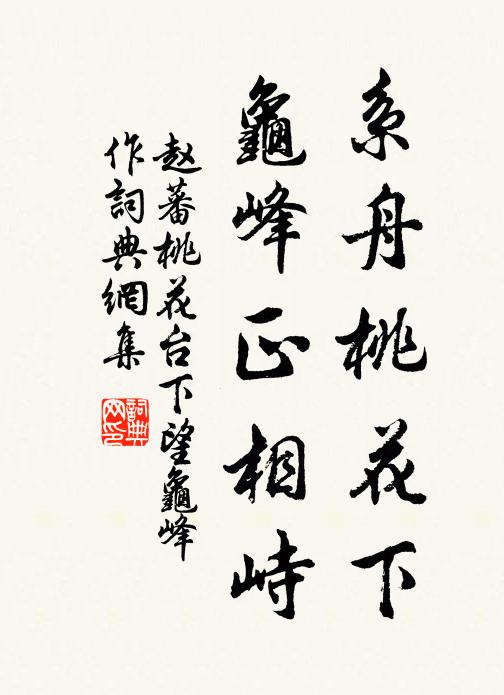 系舟桃花下
龜峰正相峙
赵蕃桃花台下望龜峰
作詞典網集
詞典網印